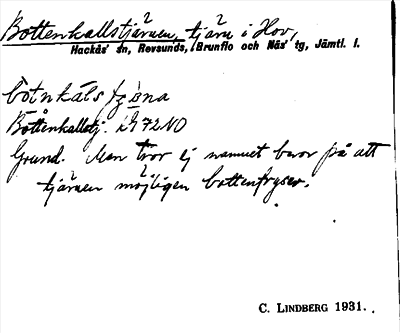 Bottenkallstjärnen, tjärn i Hov,
Hackås' sn, Revsunds, Brunflo och Näs' tg, Jämtl. l.
Bottenkallstj. 72NO
Grund. Man tror ej namnet beror på att
tjärnen möjligen bottenfryser.
C. LINDBERG 1931.